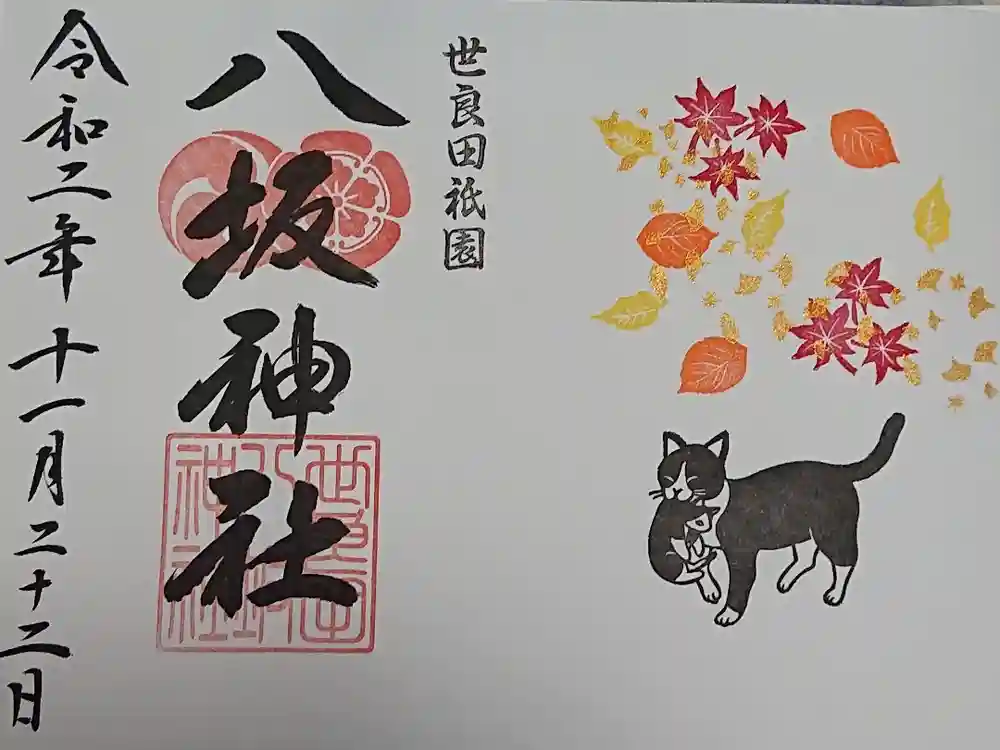 世良田祇園
八坂神社
令和二年 十一月二十二日